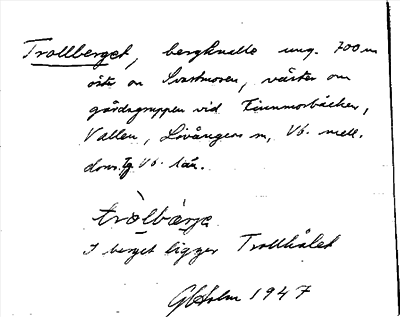 Trollberget, bergknalle ung. 700 m
öster om Svartmoren, väster om
gårdsgruppen vid Finnmorbäcken,
Vallen, Lövångers sn, Vb. mell.
doms. Vb. län.
tròlbärje
I berget ligger Trollhålet
Holm 1947